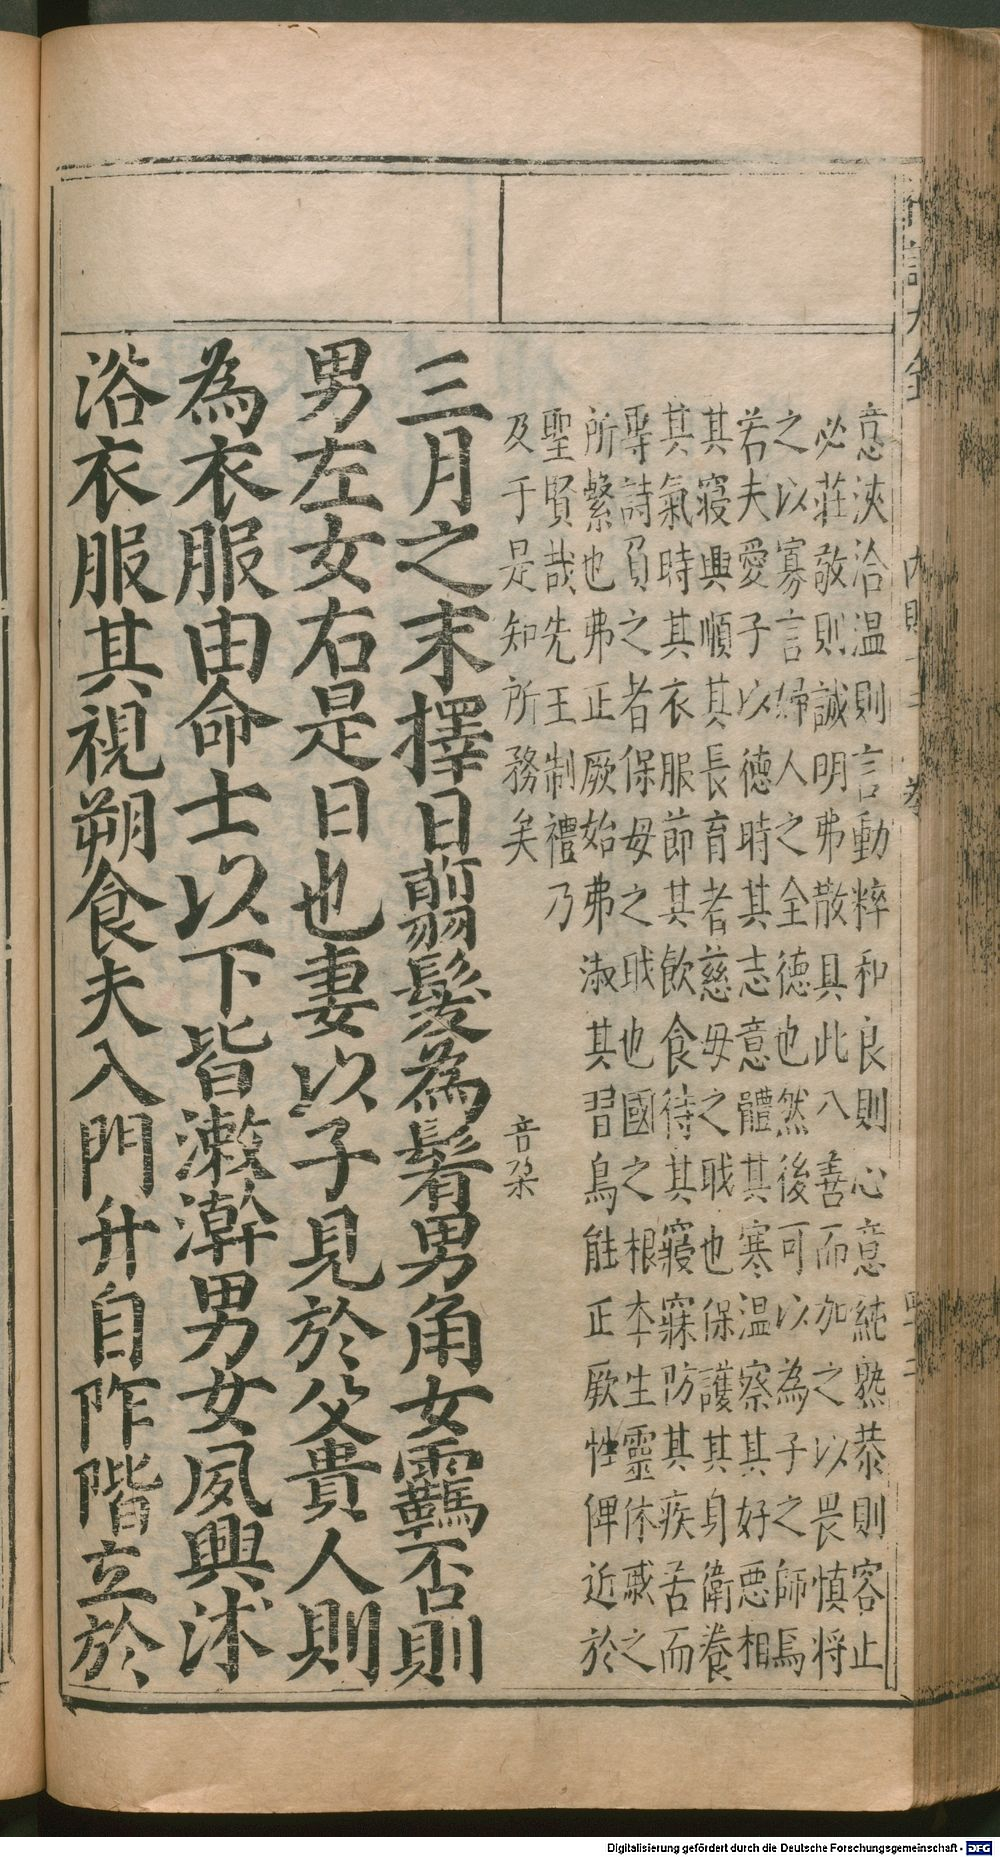 意浹洽温則言動粹和良則心意純熟恭則容止
必莊敬則誠明弗散具此八善而加之以畏慎将
之以寡言婦人之全德也然後可以為子之師焉
若夫愛子以德時其志意體其寒温察其好惡相
其寝興順其長育者慈母之戝也保護其身衛養
其氣時其衣服節其飲食待其寢寐防其疾苦而
專詩負之者保母之戝也國之根本生靈休戚之
所繫也弗正厥始弗淑其習鳥能正厥性俾近於
聖賢哉先王制禮乃
及于是知所務矣
音朶
三月之末擇日翦髮為鬌男角女羈否則
男左女右是日也妻以子見於父貴人則
為衣服由命士以下皆漱澣男女夙興沐
浴衣服其視朔食夫入門升自阼階立於
Digitalisierung gefördert durch die Deutsche Forschungsgemeinschaft - DFG